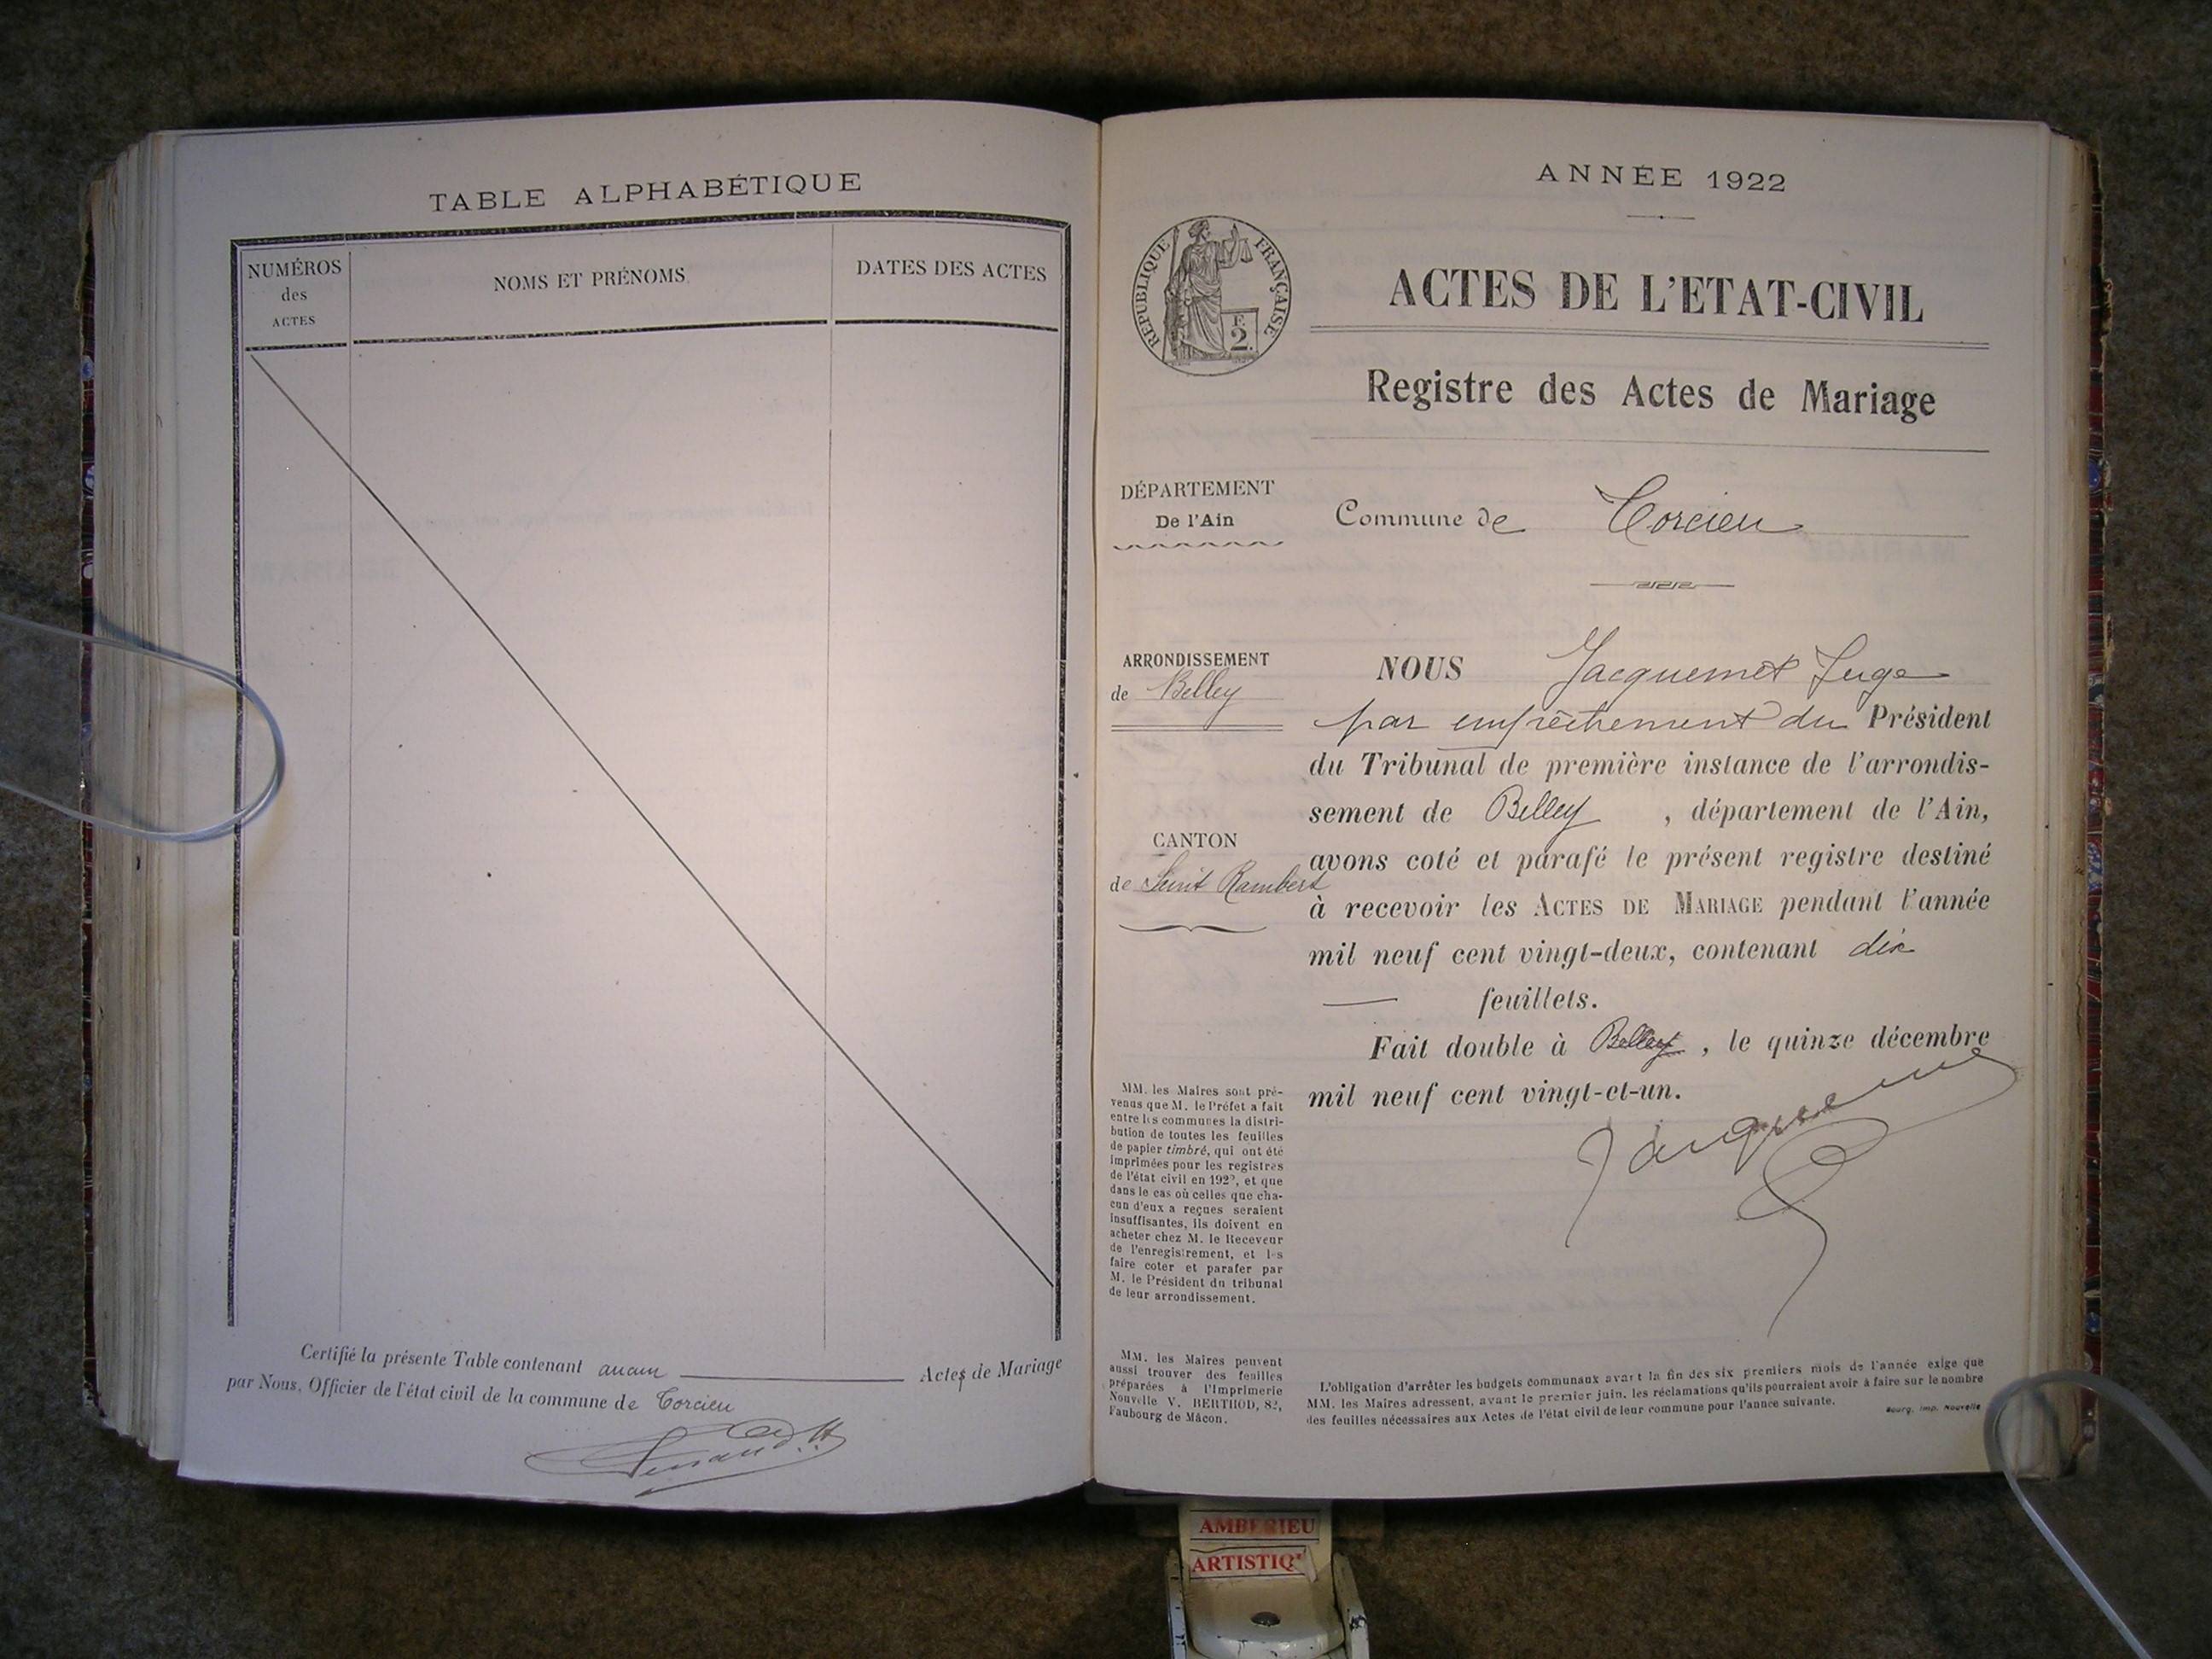 TABLE ALPHABÉTIQUE
NUMÉROS
des
ACTES
NOMS ET PRÉNOMS
DATES DES ACTES
Certifié la présente Table contenant aucun Actes de Mariage
par Nous, Officier de l'état civil de la commune de Torcieu
ANNÉE 1922
RÉPUBLIQUE FRANÇAISE
F.
2.
ACTES DE L'ETAT-CIVIL
Registre des Actes de Mariage
DÉPARTEMENT
De l'Ain
Commune de Torcieu
ARRONDISSEMENT
de Belley
CANTON
de Saint Rambert
NOUS Jacquemet Juge
par empêchement du Président
du Tribunal de première instance de l'arrondis-
sement de Belley , département de l'Ain,
avons coté et parafé le présent registre destiné
à recevoir les ACTES DE MARIAGE pendant l'année
mil neuf cent vingt-deux, contenant dix
feuillets.
Fait double à Belley , le quinze décembre
mil neuf cent vingt-et-un.
Jacquemet
MM. les Maires sont pré-
venus que M. le Préfet a fait
entre les communes la distri-
bution de toutes les feuilles
de papier timbré, qui ont été
imprimées pour les registres
de l'état civil en 1922, et que
dans le cas où celles que cha-
cun d'eux a reçues seraient
insuffisantes, ils doivent en
acheter chez M. le Receveur
de l'enregistrement, et les
faire coter et parafer par
M. le Président du tribunal
de leur arrondissement.
MM. les Maires peuvent
aussi trouver des feuilles
préparées à l'Imprimerie
Nouvelle V. BERTHOD, 82,
Faubourg de Mâcon.
L'obligation d'arrêter les budgets communaux avant la fin des six premiers mois de l'année exige que
MM. les Maires adressent, avant le premier juin, les réclamations qu'ils pourraient avoir à faire sur le nombre
des feuilles nécessaires aux Actes de l'état civil de leur commune pour l'année suivante.
Bourg, Imp. Nouvelle
AMBERIEU
ARTISTIQ'